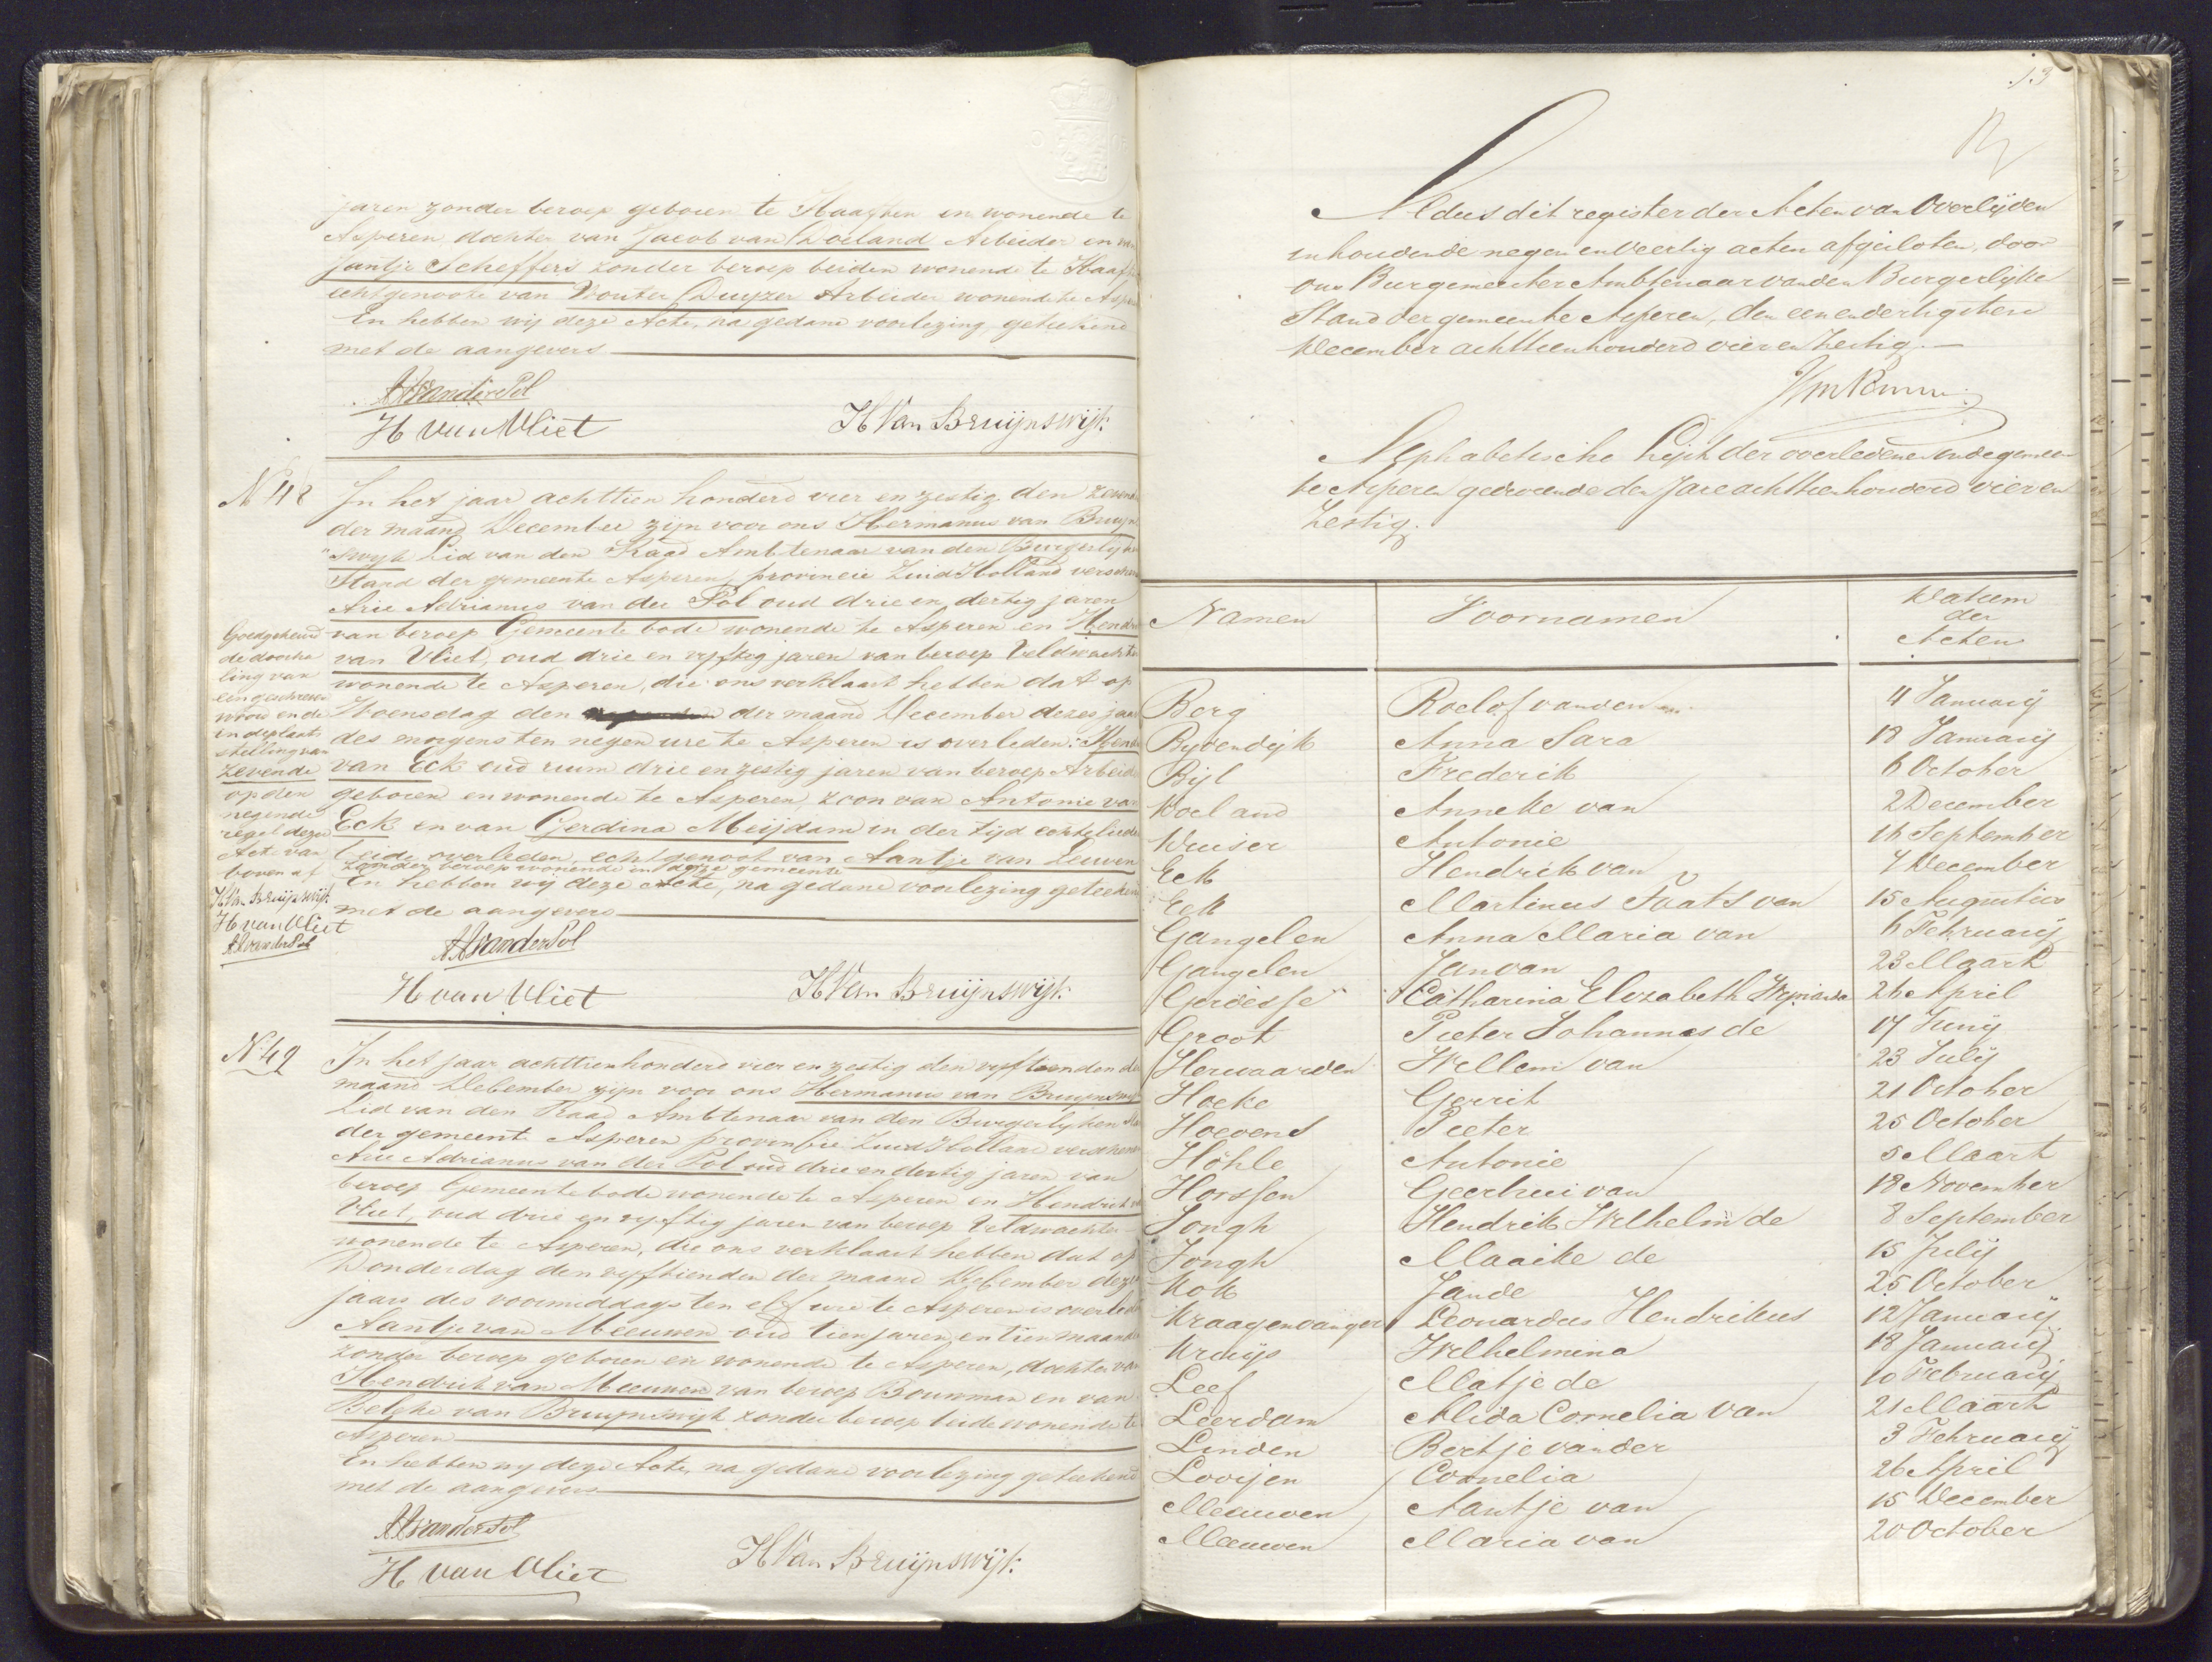 jaren zonder beroep geboren te Haaften en wonende te
Asperen dochter van Jacob van Doeland Arbeider en van
Jantje Scheffers zonder beroep beiden wonende te Haaf
echtgenoote van Wouter Duyzer Arbeider wonende te Asp
En hebben wij deze Acte, na gedane voorlezing, geteekend
met de aangevers
AAvanderPol
H van Vliet H Van Bruijnswijk.
N 48 In het jaar achttien honderd vier en zestig den zeven
der maand December zijn voor ons Hermanus van Bruyn
swyk Lid van den Raad Ambtenaar van den Burgerlyken
Stand der gemeente Asperen, provincie Zuid Holland versch
Arie Adrianus van der Pol oud drie en dertig jaren
van beroep Gemeente bode wonende te Asperen en Hend
van Vliet, oud drie en vyftig jaren van beroep Veldwachte
wonende te Asperen, die ons verklaart hebben dat op
Woensdag den der maand December dezes jaa
des morgens ten negen ure te Asperen is overleden: Hend
van Eck oud ruim drie en zestig jaren van beroep Arbeid
geboren en wonende te Asperen, zoon van Antonie van
Eck en van Gerdina Meijdam in der tijd echteliede
beide overleden, echtgenoot van Aantje van Leuven
zonder beroep wonende in deze gemeente
En hebben wij deze Acte, na gedane voorlezing geteeken
met de aangevers
AAvanderPol
H van Vliet H Van Bruijnswijk.
Goedgekeurd
de doorha
ling van
een geschreven
woord en de
in deplaats
stelling van
zevende
op den
negende
regel dezer
Acte van
boven af
H Van Bruijnswijk
H van Vliet
AAvanderPol
N. 49 In het jaar achttienhonderd vier en zestig den vyftienden de
maand December zijn voor ons Hermanus van Bruynswy
Lid van den Raad Ambtenaar van den Burgerlyken Sta
der gemeente Asperen provincie Zuid Holland verschene
Arie Adrianus van der Pol oud drie en dertig jaren van
beroep Gemeente bode wonende te Asperen en Hendrik v
Vliet, oud drie en vyftig jaren van beroep Veldwachter
wonende te Asperen, die ons verklaart hebben dat op
Donderdag den vyftienden der maand December deze
jaars des voormiddags ten elf ure te Asperen is overled
Aantje van Meeuwen oud tien jaren en tien maande
zonder beroep geboren en wonende te Asperen, dochter van
Hendrik van Meeuwen van beroep Bouwman en van
Beligke van Bruynswyk zonder beroep beide wonende te
Asperen
En hebben wy deze Acte, na gedane voorlezing geteekend
met de aangevers
AAvanderPol
H van Vliet H Van Bruijnswijk.
13
Aldus dit register der Acten van Overlijden
inhoudende negen en veertig acten afgesloten, door
ons Burgemeester Ambtenaar van den Burgerlijke
Stand der gemeente Asperen, den een en dertigsten
December achttienhonderd vier en Zestig.
Alphabetische Lijst der overledenen in de gemeen
te Asperen gedurende den Jare achttienhonderd vier en
Zestig.
Namen Voornamen Datum der Acten
Berg Roelof van den 4 Januarij
Bijvendijk Anna Sara 18 Januarij
Bijl Frederik 6 October
Doeland Anneke van 2 December
Duiser Antonie 16 September
Eck Hendrik van 7 December
Eck Martinus Staats van 15 Augustus
Gangelen Anna Maria van 6 Februarij
Gangelen Jan van 23 Maart
Gerdesse Catharina Elizabeth Wynanda 26 April
Groot Pieter Johannes de 17 Junij
Herwaarden Willem van 23 Julij
Hoeke Gerrit 21 October
Hoevens Pieter 25 October
Höhle Antonie 5 Maart
Horssen Geertrui van 18 November
Jongh Hendrik Wilhelm de 8 September
Jongh Maaike de 15 Julij
Kok Jan de 25 October
Kraagenvanger Leonardus Hendrikus 12 Januarij
Kruijs Wilhelmina 18 Januarij
Leef Matje de 10 Februarij
Leerdam Alida Cornelia van 21 Maart
Linden Bertje van der 3 Februarij
Looijen Cornelia 26 April
Meeuwen Aantje van 15 December
Meeuwen Maria van 20 October